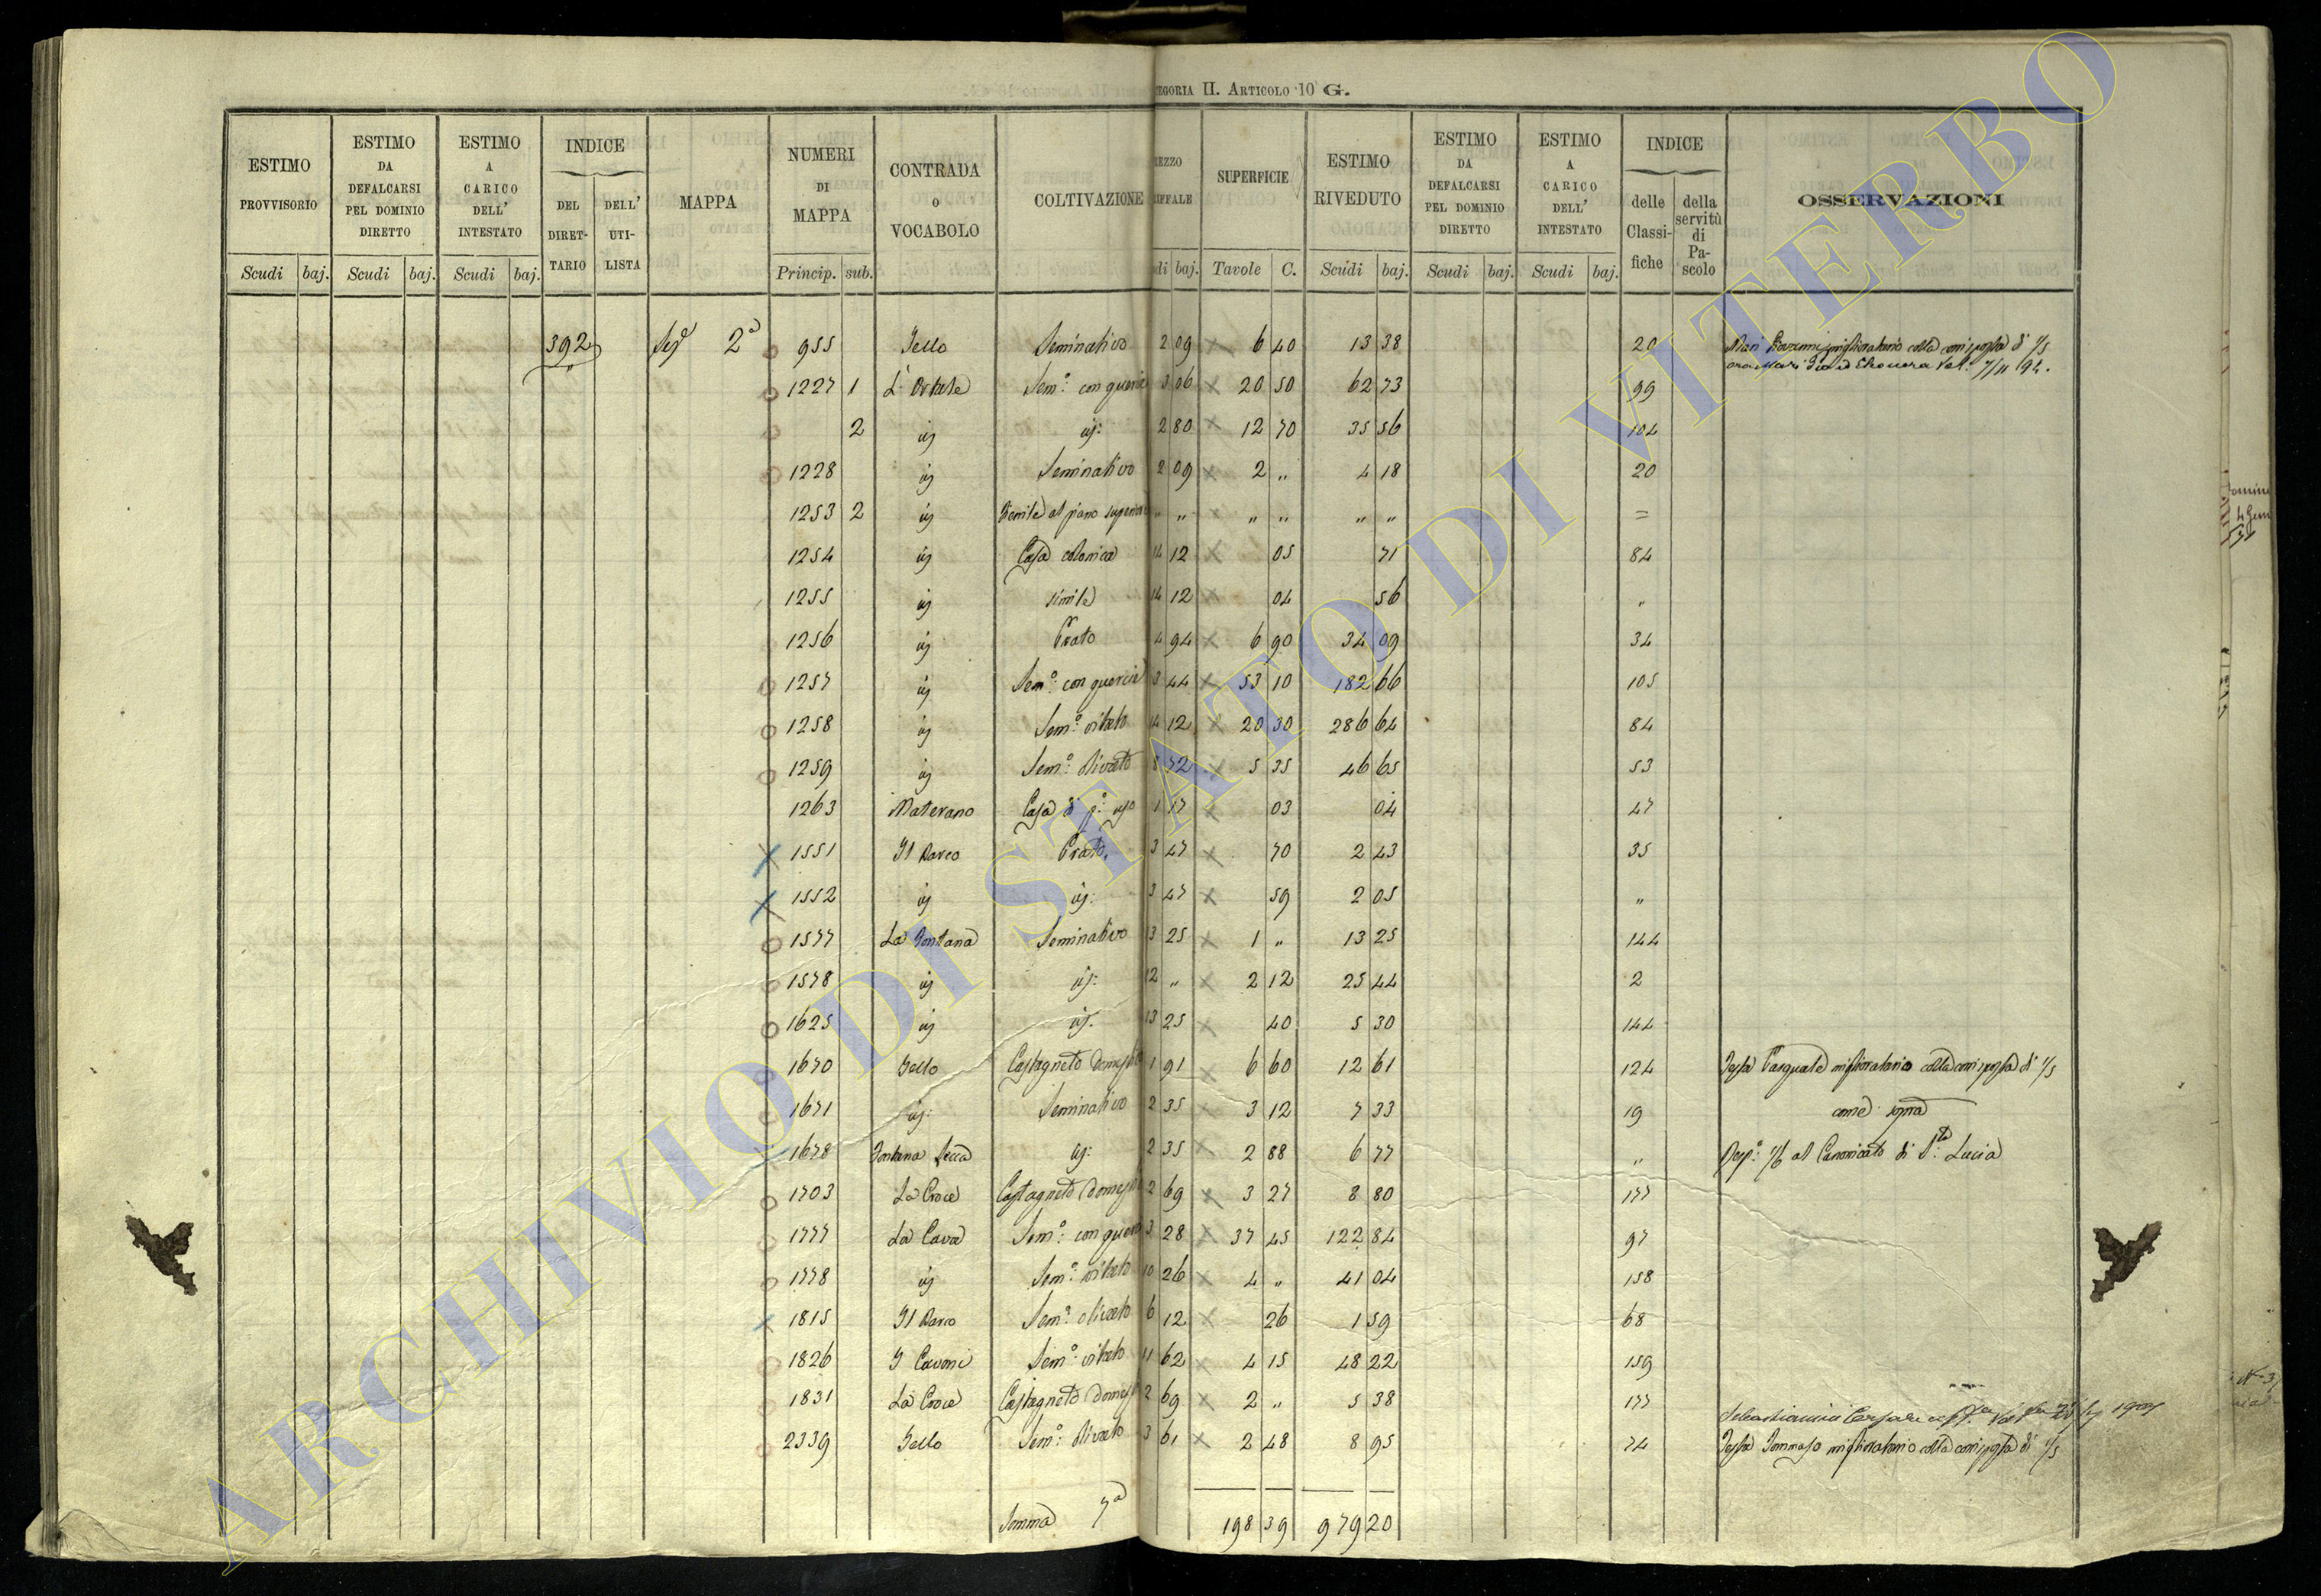 EGORIA II. ARTICOLO 10 G.
ESTIMO PROVVISORIO | ESTIMO DA DEFALCARSI PEL DOMINIO DIRETTO | ESTIMO A CARICO DELL' INTESTATO | INDICE | MAPPA | NUMERI DI MAPPA | CONTRADA O VOCABOLO | COLTIVAZIONE | EZZO IFFALE | SUPERFICIE | ESTIMO RIVEDUTO | ESTIMO DA DEFALCARSI PEL DOMINIO DIRETTO | ESTIMO A CARICO DELL' INTESTATO | INDICE | OSSERVAZIONI
DEL DIRETTARIO | DELL' UTILISTA | delle Classifiche | della servitù di Pascolo
Scudi baj. Scudi baj. Scudi baj. Princip. sub. di baj. Tavole C. Scudi baj. Scudi baj. Scudi baj.
392 Sez 2a 955 Jello Seminativo 2 09 6 40 13 38 20
1227 1 L' Ortale Sem.o con quercie 3 06 20 50 62 73 99
2 id id: 2 80 12 70 35 56 104
1228 id Seminativo 2 09 2 " 4 18 20
1253 2 id Fienile al piano superiore " " " " " " =
1254 id Casa colonica 14 12 05 71 84
1255 id simile 14 12 04 56 "
1256 id Prato 4 94 6 90 34 09 34
1257 id Sem.o con quercie 3 44 53 10 182 66 105
1258 id Sem.o vitato 14 12 20 30 286 64 84
1259 id Sem.o olivato 8 72 5 35 46 65 53
1263 Materano Casa di p.o uso 1 17 03 04 47
1551 Il Parco Prato 3 47 70 2 43 35
1552 id id: 3 47 59 2 05 "
1577 La Fontana Seminativo 13 25 1 " 13 25 144
1578 id id: 12 " 2 12 25 44 2
1625 id id. 13 25 40 5 30 144
1670 Jello Castagneto Domest 1 91 6 60 12 61 124 Testa Pasquale miglioratario colla corrisposta di 1/5
1671 id: Seminativo 2 35 3 12 7 33 19 come sopra
1678 Fontana Secca id: 2 35 2 88 6 77 " Risp.e 1/6 al Canonicato di S.ta Lucia
1703 La Croce Castagneto Domest 2 69 3 27 8 80 177
1777 La Cava Sem.o con querc 3 28 37 45 122 84 97
1778 id Sem.o vitato 10 26 4 " 41 04 158
1815 Il Parco Sem.o olivato 6 12 26 1 59 68
1826 I Cavoni Sem.o vitato 11 62 4 15 48 22 159
1831 La Croce Castagneto Domest 2 69 2 " 5 38 177
2339 Jello Sem.o olivato 3 61 2 48 8 95 74 Testa Tommaso miglioratario colla corrisposta di 1/5
Somma 7a 198 39 979 20
ARCHIVIO DI STATO DI VITERBO